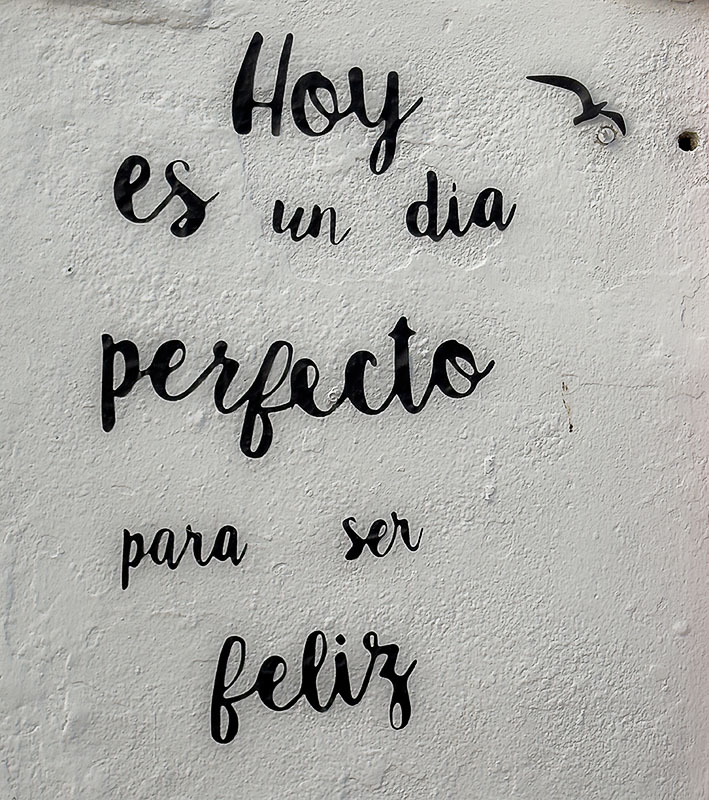 Hoy
es un dia
perfecto
para ser
feliz